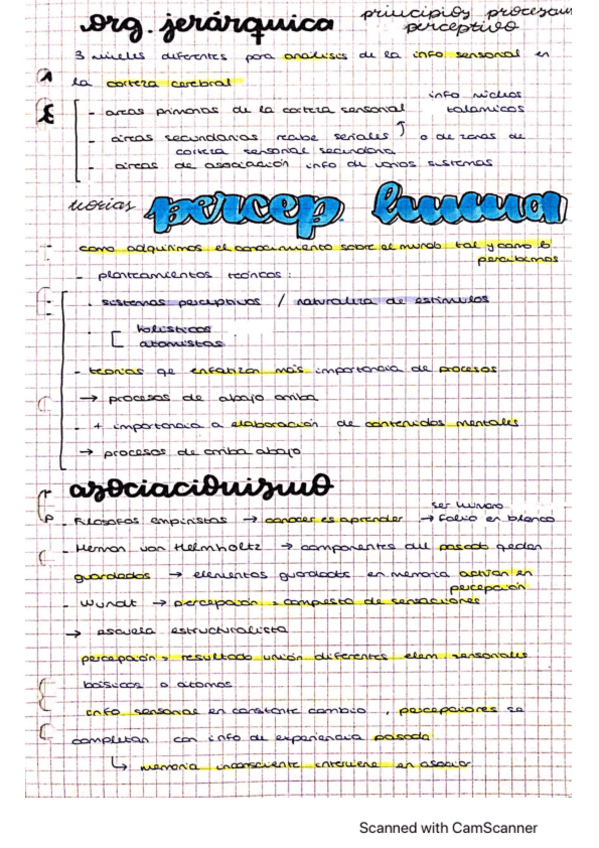 org. jerárquica
principios procesam
perceptivo
3 niveles diferentes para analisis de la info sensorial en
la corteza cerebral
- areas primarias de la corteza sensorial info nucleos
talamicos
- areas secundarias recibe señales o de zonas de
corteza sensorial secundaria
- areas de asociación info de varios sistemas
teorias percep. humana
como adquirimos el conocimiento sobre el mundo tal y como lo
percibimos
- planteamientos teoricos:
· sistemas perceptivos / naturaleza de estímulos
· holisticos
atomistas
- teorias qe enfatizan más importancia de procesos
→ procesos de abajo arriba
- + importancia a elaboración de contenidos mentales
→ procesos de arriba abajo
asociacionismo
- Filosofos empiristas → conocer es aprender → ser humano
folio en blanco
- Herman von Helmholtz → componentes del pasado qedan
guardados → elementos guardados en memoria activan en
percepción
- Wundt → percepción = compuesta de sensaciones
→ escuela estructuralista
percepción = resultado unión diferentes elem. sensoriales
básicos o atomos
info sensorial en constante cambio, percepciones se
completan con info de experiencia pasada
↳ memoria inconsciente interviene en asociar
Scanned with CamScanner